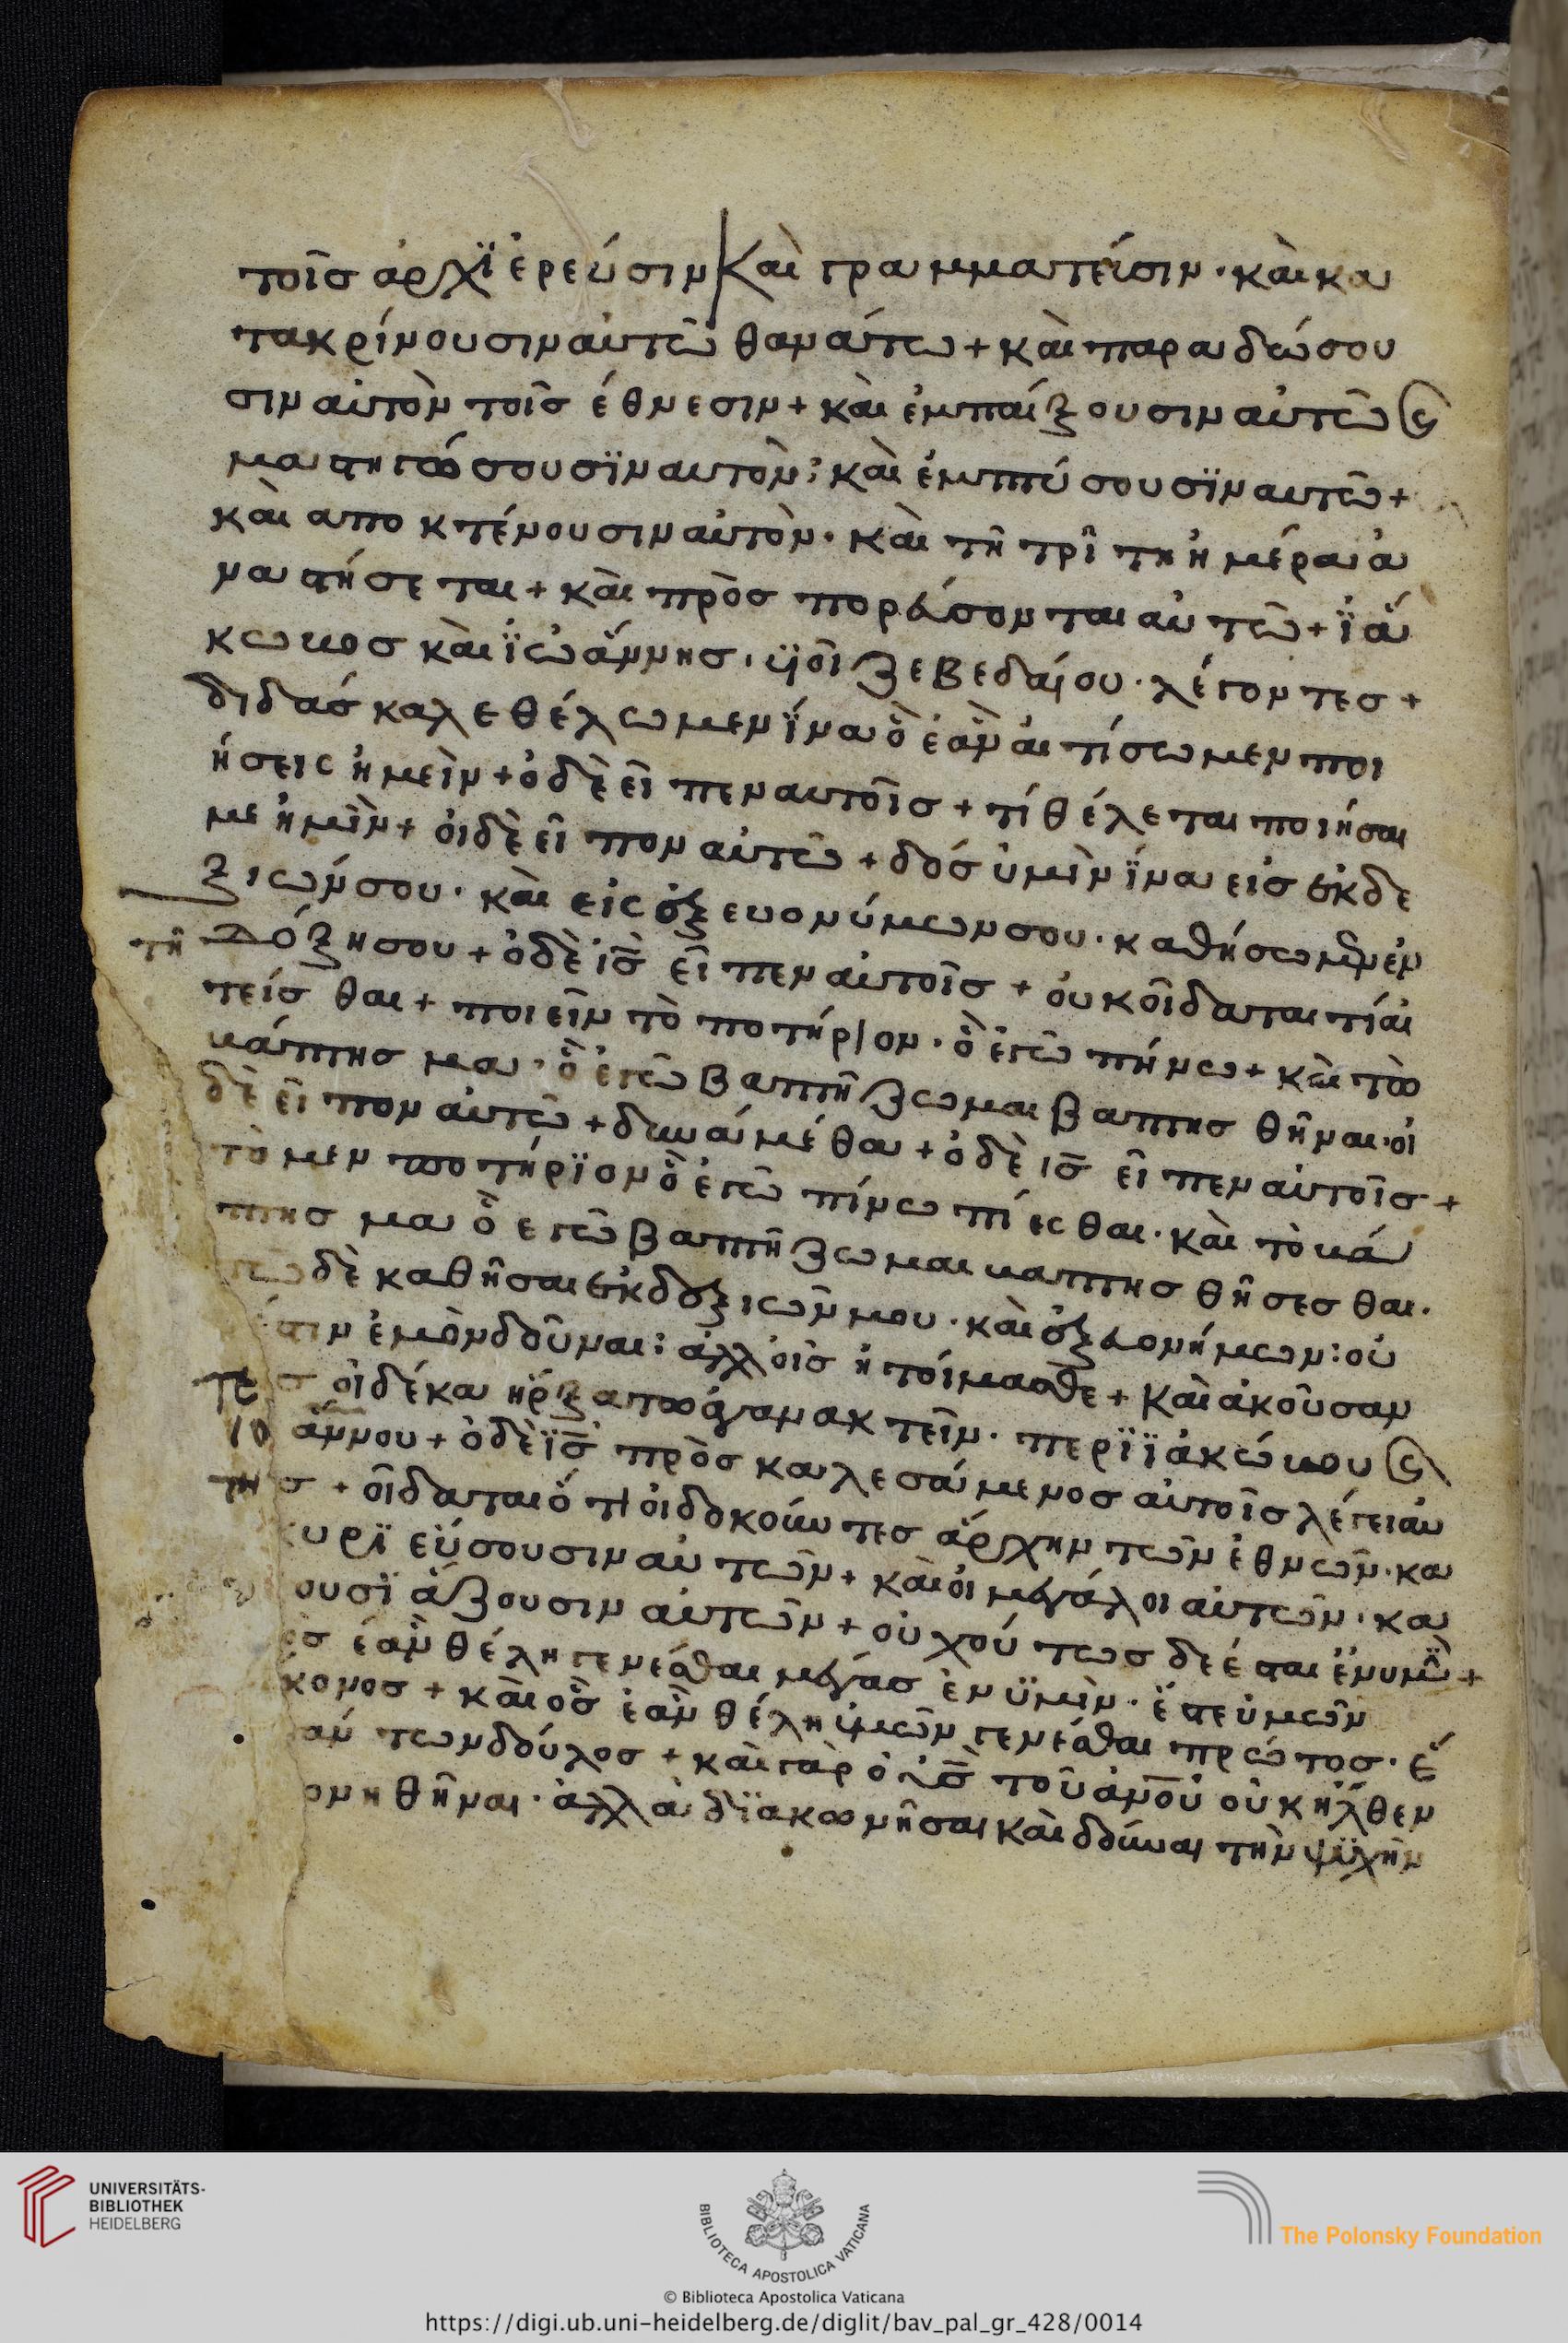 τοῖσ ἀρχϊἑρεύσιν Καὶ γραμματεύσιν· κὰι κα
τακρίνουσιν αὐτῶ θανάτω + κὰι παραδώσου
σιν αὐτὸν τοῖσ ἔθνεσιν + κὰι ἐμπαίξουσιν αὐτῶ ϛ
μαστηγώσουσϊν αυτὸν: κὰι ἐμπτύσουσϊν αυτῶ +
κὰι αποκτένουσιν αὐτὸν· κὰι τῆ τρῖτη ἡμέρα ἀ
ναστήσεται + κὰι πρὸσ πορεύσονται αὐτῶ + ϊἄ
κωβοσ κὰι ϊὡἄννησ· ϋϊοῖ ζεβεδαίου· λέγοντεσ +
διδάσκαλε θέλωμεν ϊνα ὃ ἐὰν αἰτίσωμεν ποι
ήσεις ἡμεὶν + ὁ δὲ εῖπεν αυτοῖσ + τί θέλεται ποιήσαι
με ἡμῖν + ὁι δὲ εῖπον αὐτῶ + δόσ ὑμὶν ϊνα εἱσ ἐκ δε
ξιών σου· κὰι εἱς ἐξ ευονύμων σου· καθήσωμεν ἐν
τῆ δόξη σου + ὁ δὲ ι̅σ̅ εῖπεν αὐτοῖσ + ὀυκ οῖδαται τί αἰ
τείσθαι + ποιεῖν τὸ ποτήριον· ὃ ἐγῶ πήνω + κὰι τὸ
βάπτησμα· ὃ ἐγῶ βαπτῆζωμαι βαπτησθῆναι· ὁι
δὲ εῖπον αὐτῶ + δυναμέθα + ὁ δὲ ι̅σ̅ εῖπεν αὐτοῖσ +
τὸ μεν ποτήρϊον ὃ ἐγῶ πίνω πίεςθαι· κὰι τὸ βά
πτησμα ὃ εγῶ βαπτῆζωμαι βαπτησθῆσεσθαι·
τῶ δὲ καθῆσαι ἐκ δεξιῶν μου· κὰι ἐξ εὐονήμων: οὐ
έστιν ἐμὸν δοῦναι: ἀλλ' οἷσ ἡτοίμασθε + Κὰι ἀκοῦσαν
τεσ οἱ δέκα ηρξατο ἀγανακτεῖν· περϊ ϊἀκώβου ϛ
ϊωἄννου + ὁ δὲ ϊ̅σ̅ πρὸσ καλεσάμενοσ αὐτοῖσ λέγει αυ
τησ + οῖδαται ὅτι ὁι δοκούντεσ ἄρχην τῶν ἐθνῶν· κα
κυρϊεύσουσιν αὐτῶν + κὰι οἱ μεγάλοι αὐτῶν· κα
ουσϊάζουσιν αὐτῶν + οὐχ ούτωσ δε έσται ἐν υμῖν +
ὃσ ἐὰν θέλη γενέσθαι μέγασ ἐν ϋμὶν· ἔσται ὑμῶν
κονοσ + κὰι ὃσ ἐὰν θέλη ὑμῶν γενέσθαι πρώτοσ· ἔ
πάντων δούλοσ + κὰι γὰρ ὁ υ̅σ̅ τοῦ ἀν̅ο̅υ̅ οὐκ ἦλθεν
ονηθῆναι· ἀλλὰ δϊακονῆσαι κὰι δούναι τὴν ψϋχὴν
UNIVERSITÄTS-
BIBLIOTHEK
HEIDELBERG
BIBLIOTECA APOSTOLICA VATICANA
The Polonsky Foundation
© Biblioteca Apostolica Vaticana
https://digi.ub.uni-heidelberg.de/diglit/bav_pal_gr_428/0014